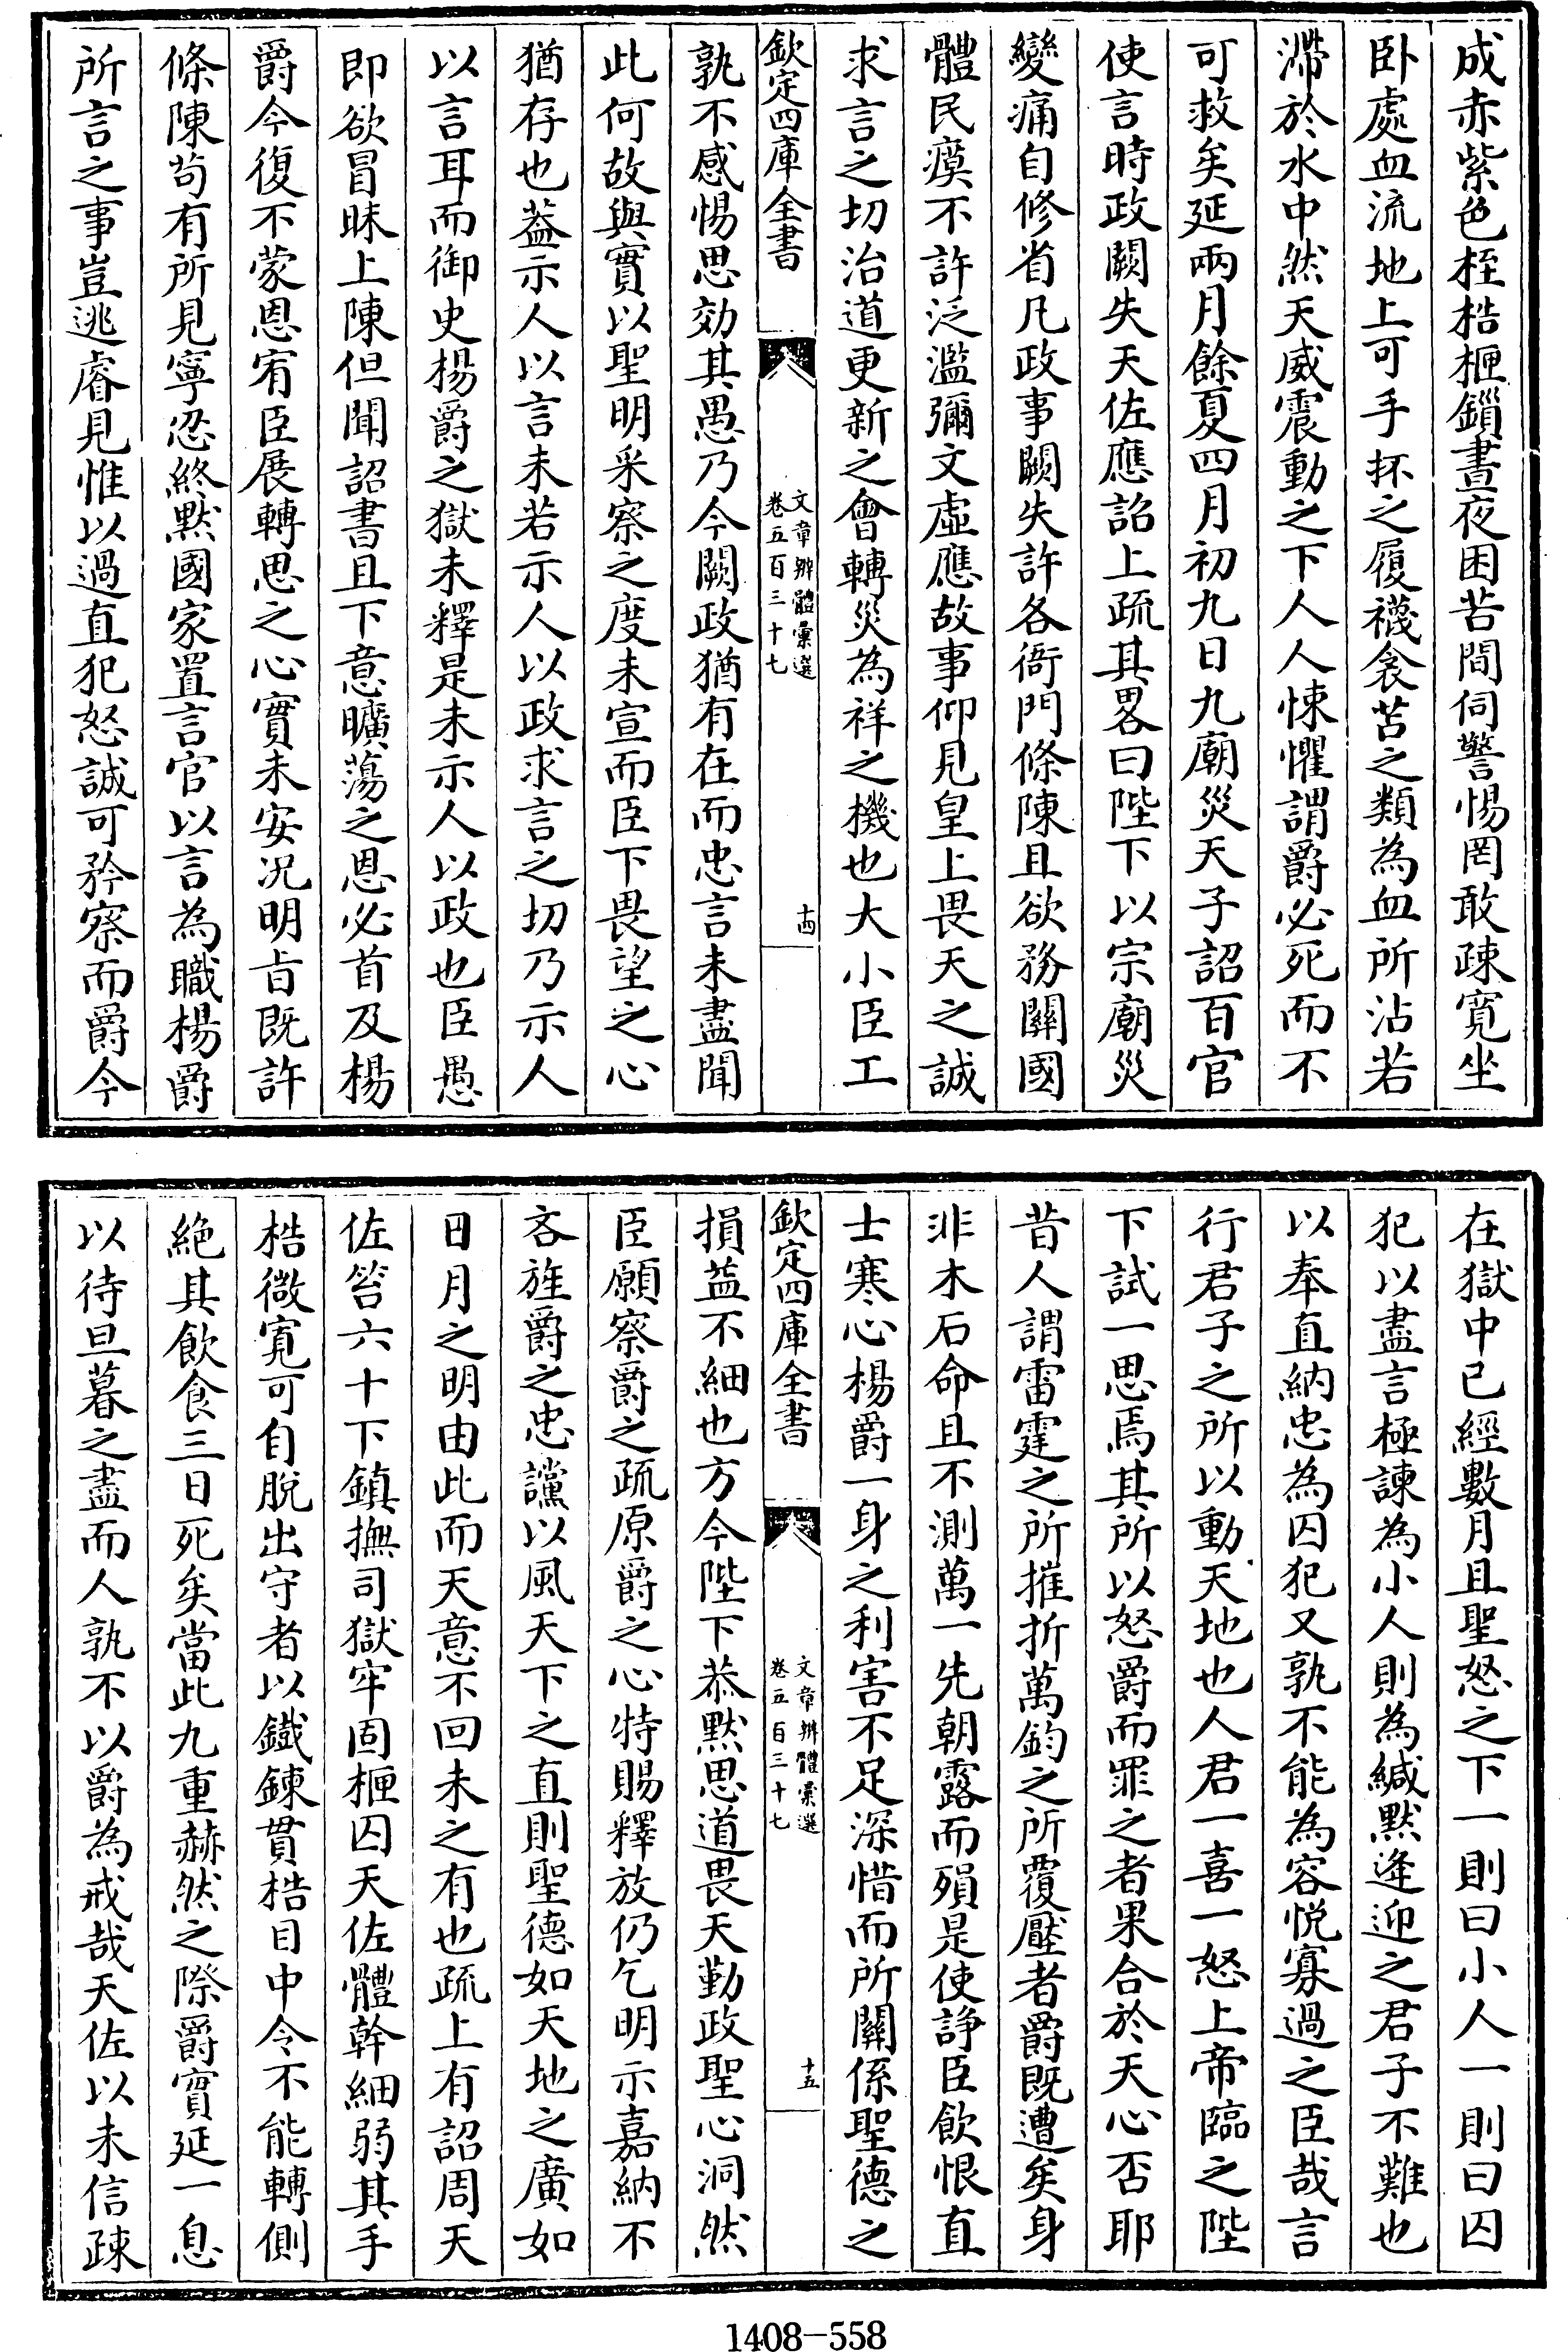 成赤紫色桎梏柙鎻晝夜困苦間伺警惕罔敢疎寛坐
卧處血流地上可手抔之履襪衾苫之類為血所沾若
滯於水中然天威震動之下人人悚懼謂爵必死而不
可救矣延兩月餘夏四月初九日九廟災天子詔百官
使言時政闕失天佐應詔上疏其畧曰陛下以宗廟災
變痛自修省凡政事闕失許各衙門條陳且欲務關國
體民瘼不許泛濫彌文虛應故事仰見皇上畏天之誠
求言之切治道更新之會轉災為祥之機也大小臣工
欽定四庫全書
文章辨體彙選
卷五百三十七
十四
孰不感惕思効其愚乃今闕政猶有在而忠言未盡聞
此何故與實以聖明采察之度未宣而臣下畏望之心
猶存也葢示人以言未若示人以政求言之切乃示人
以言耳而御史楊爵之獄未釋是未示人以政也臣愚
即欲冒昧上陳但聞詔書且下意曠蕩之恩必首及楊
爵今復不蒙恩宥臣展轉思之心實未安况明㫖既許
條陳茍有所見寧忍終黙國家置言官以言為職楊爵
所言之事豈逃睿見惟以過直犯怒誠可矜察而爵今
在獄中已經數月且聖怒之下一則曰小人一則曰囚
犯以盡言極諫為小人則為緘黙逢迎之君子不難也
以奉直納忠為囚犯又孰不能為容悦寡過之臣哉言
行君子之所以動天地也人君一喜一怒上帝臨之陛
下試一思焉其所以怒爵而罪之者果合於天心否耶
昔人謂雷霆之所摧折萬鈞之所覆壓者爵既遭矣身
非木石命且不測萬一先朝露而殞是使諍臣飲恨直
士寒心楊爵一身之利害不足深惜而所關係聖德之
欽定四庫全書
文章辨體彙選
卷五百三十七
十五
損益不細也方今陛下恭黙思道畏天勤政聖心洞然
臣願察爵之疏原爵之心特賜釋放仍乞明示嘉納不
吝旌爵之忠讜以風天下之直則聖德如天地之廣如
日月之明由此而天意不回未之有也疏上有詔周天
佐笞六十下鎮撫司獄牢固柙囚天佐體幹細弱其手
梏微寛可自脫出守者以鐵鍊貫梏目中令不能轉側
絶其飲食三日死矣當此九重赫然之際爵實延一息
以待旦暮之盡而人孰不以爵為戒哉天佐以未信疎
1408-558